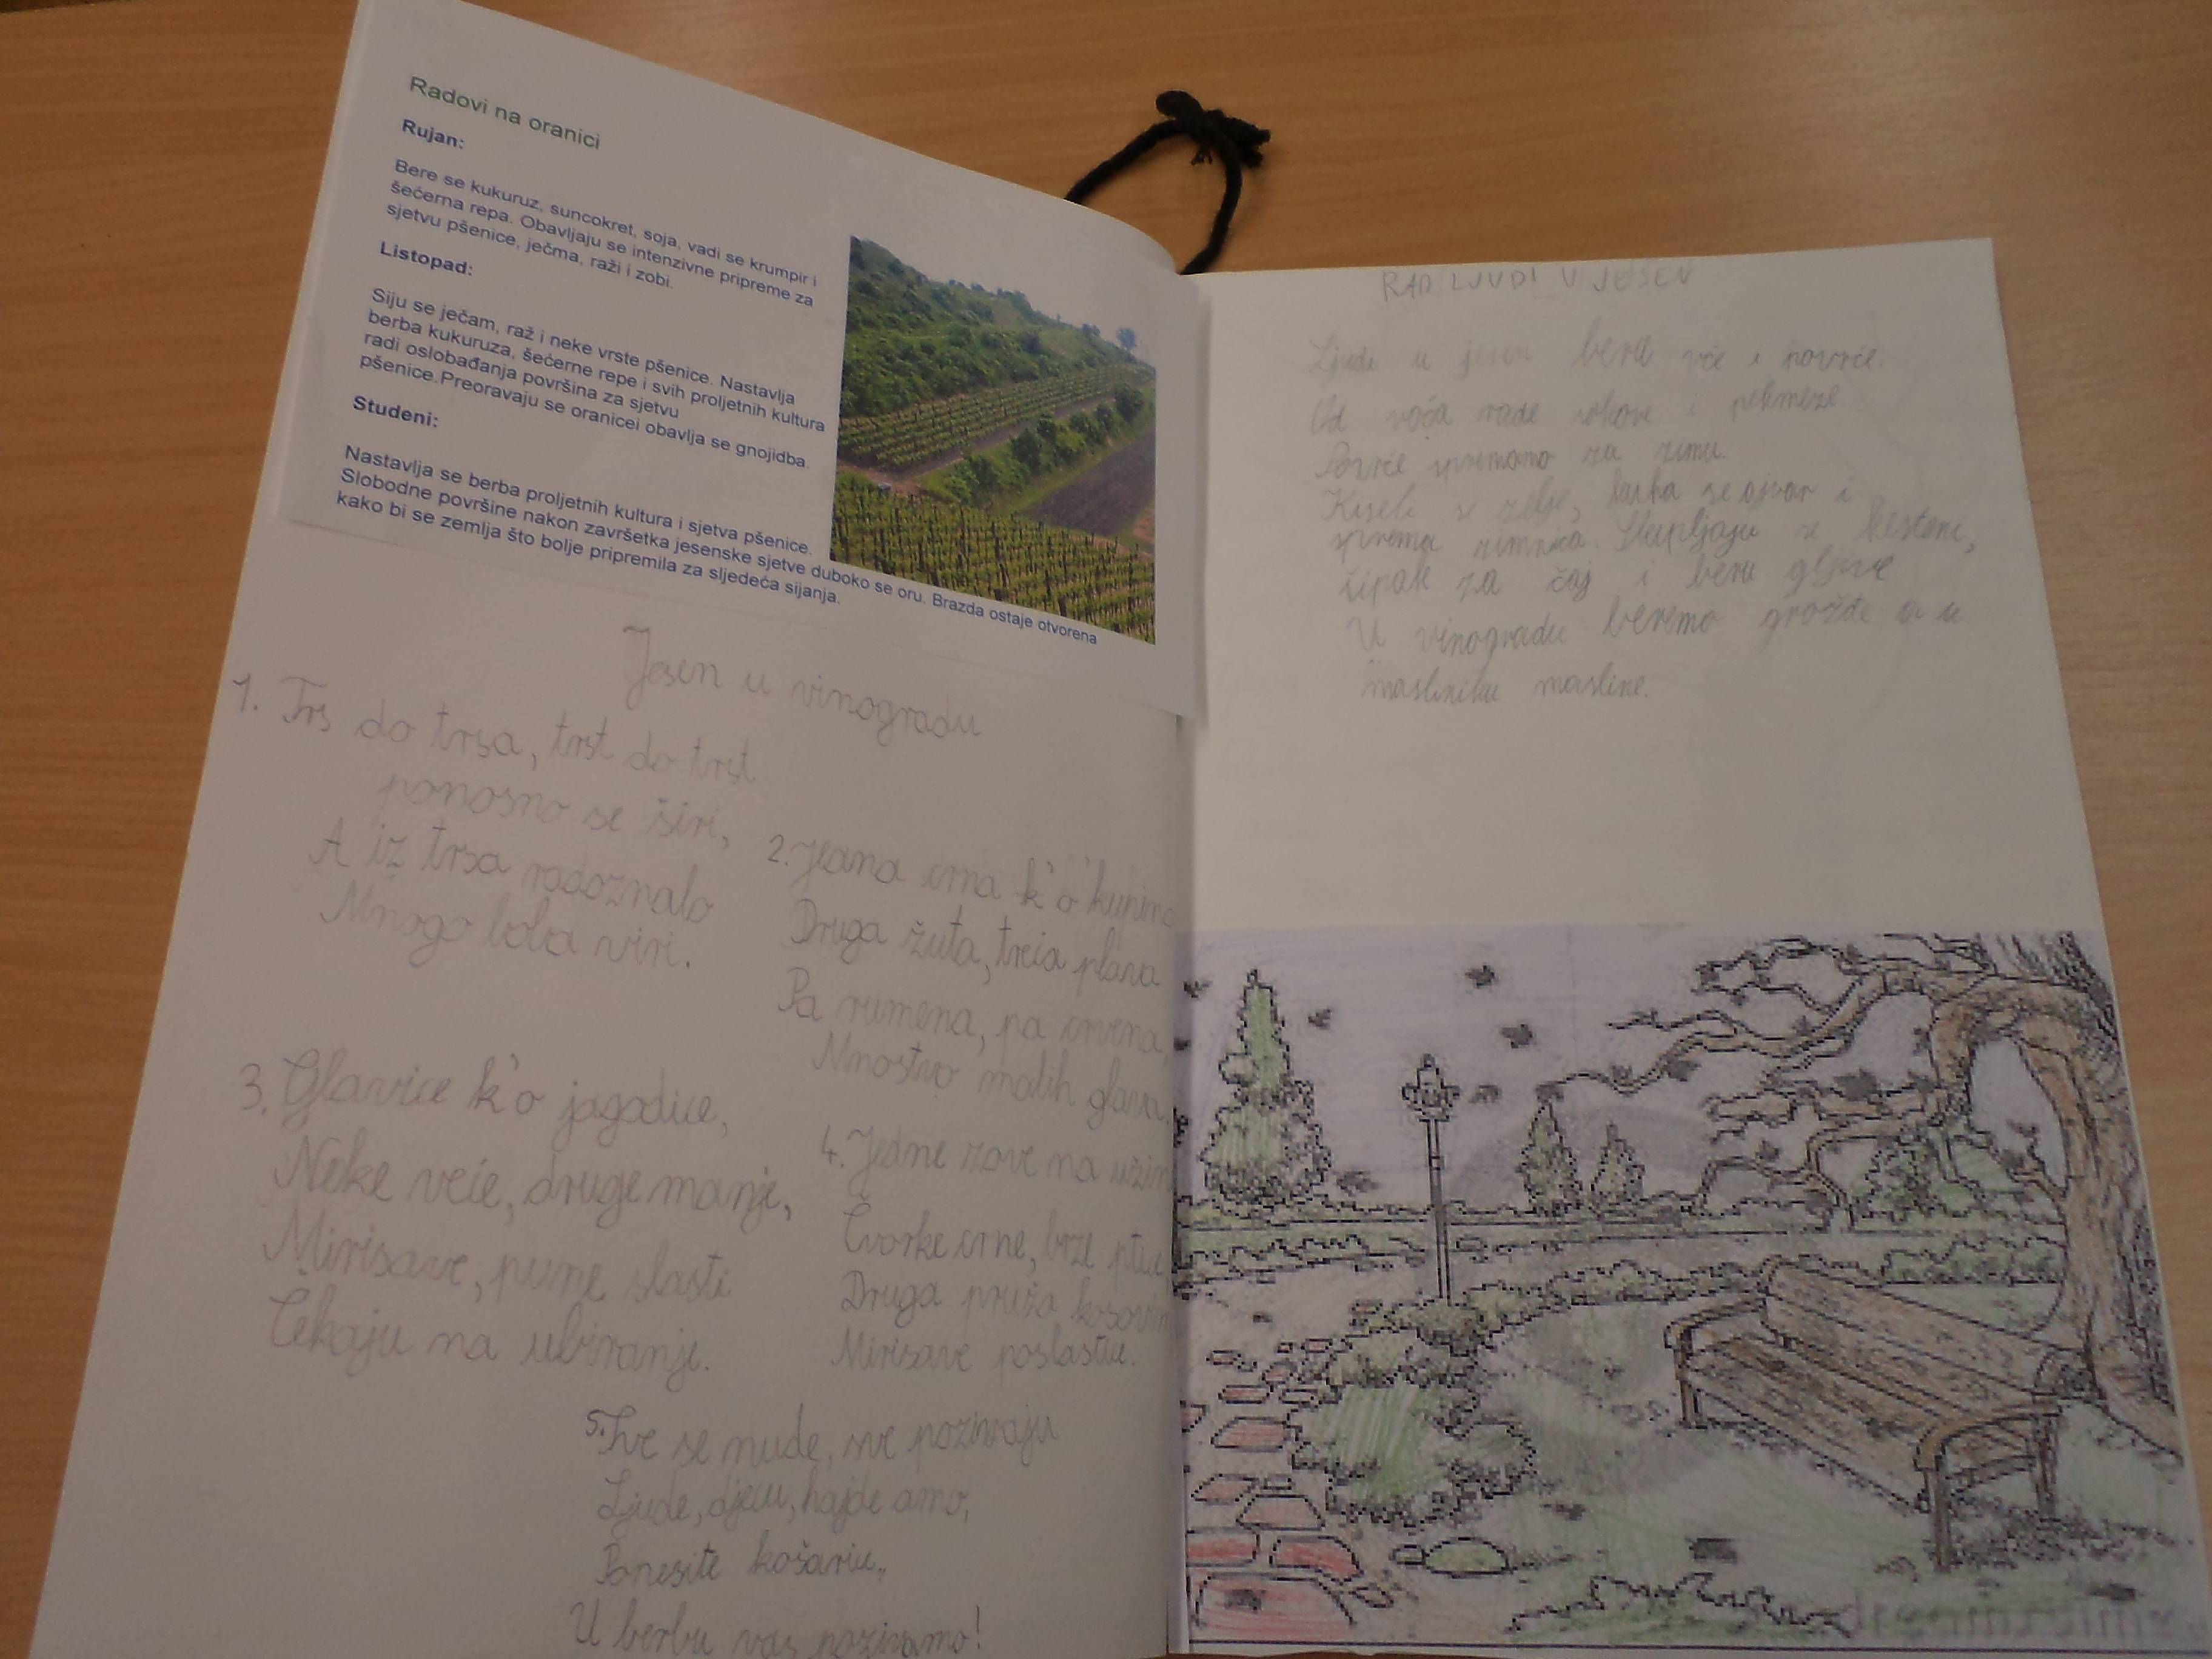 Radovi na oranici
Rujan:
Bere se kukuruz, suncokret, soja, vadi se krumpir i
šećerna repa. Obavljaju se intenzivne pripreme za
sjetvu pšenice, ječma, raži i zobi.
Listopad:
Siju se ječam, raž i neke vrste pšenice. Nastavlja
berba kukuruza, šećerne repe i svih proljetnih kultura
radi oslobađanja površina za sjetvu
pšenice.Preoravaju se oranicei obavlja se gnojidba.
Studeni:
Nastavlja se berba proljetnih kultura i sjetva pšenice.
Slobodne površine nakon završetka jesenske sjetve duboko se oru. Brazda ostaje otvorena
kako bi se zemlja što bolje pripremila za sljedeća sijanja.
Jesen u vinogradu
1. Trs do trsa, trst do trst
ponosno se širi,
A iz trsa radoznalo
Mnogo boba viri.
2. Jedna crna k'o kupina
Druga žuta, treća plava
Pa rumena, pa crvena,
Mnoštvo malih glava,
3. Glavice k'o jagodice,
Neke veće, druge manje,
Mirisave, pune slasti
Čekaju na ubiranje.
4. Jedne zove na
Čvorke crne, brze ptice
Druga pruža
Mirisave poslastice.
5. Sve se nude, sve pozivaju
Ljude, djecu, hajde amo,
Ponesite košarice,
U berbu vas pozivamo!
RAD LJUDI U JESEN
Ljudi u jesen beru i povrće.
Od voća rade sokove i pekmeze.
Povrće spremamo za zimu.
Kiseli se zelje, kuha se ajvar i
sprema zimnica. Skupljaju se kesteni,
šipak za čaj i beru gljive
U vinogradu beremo grožđe a u
masliniku masline.